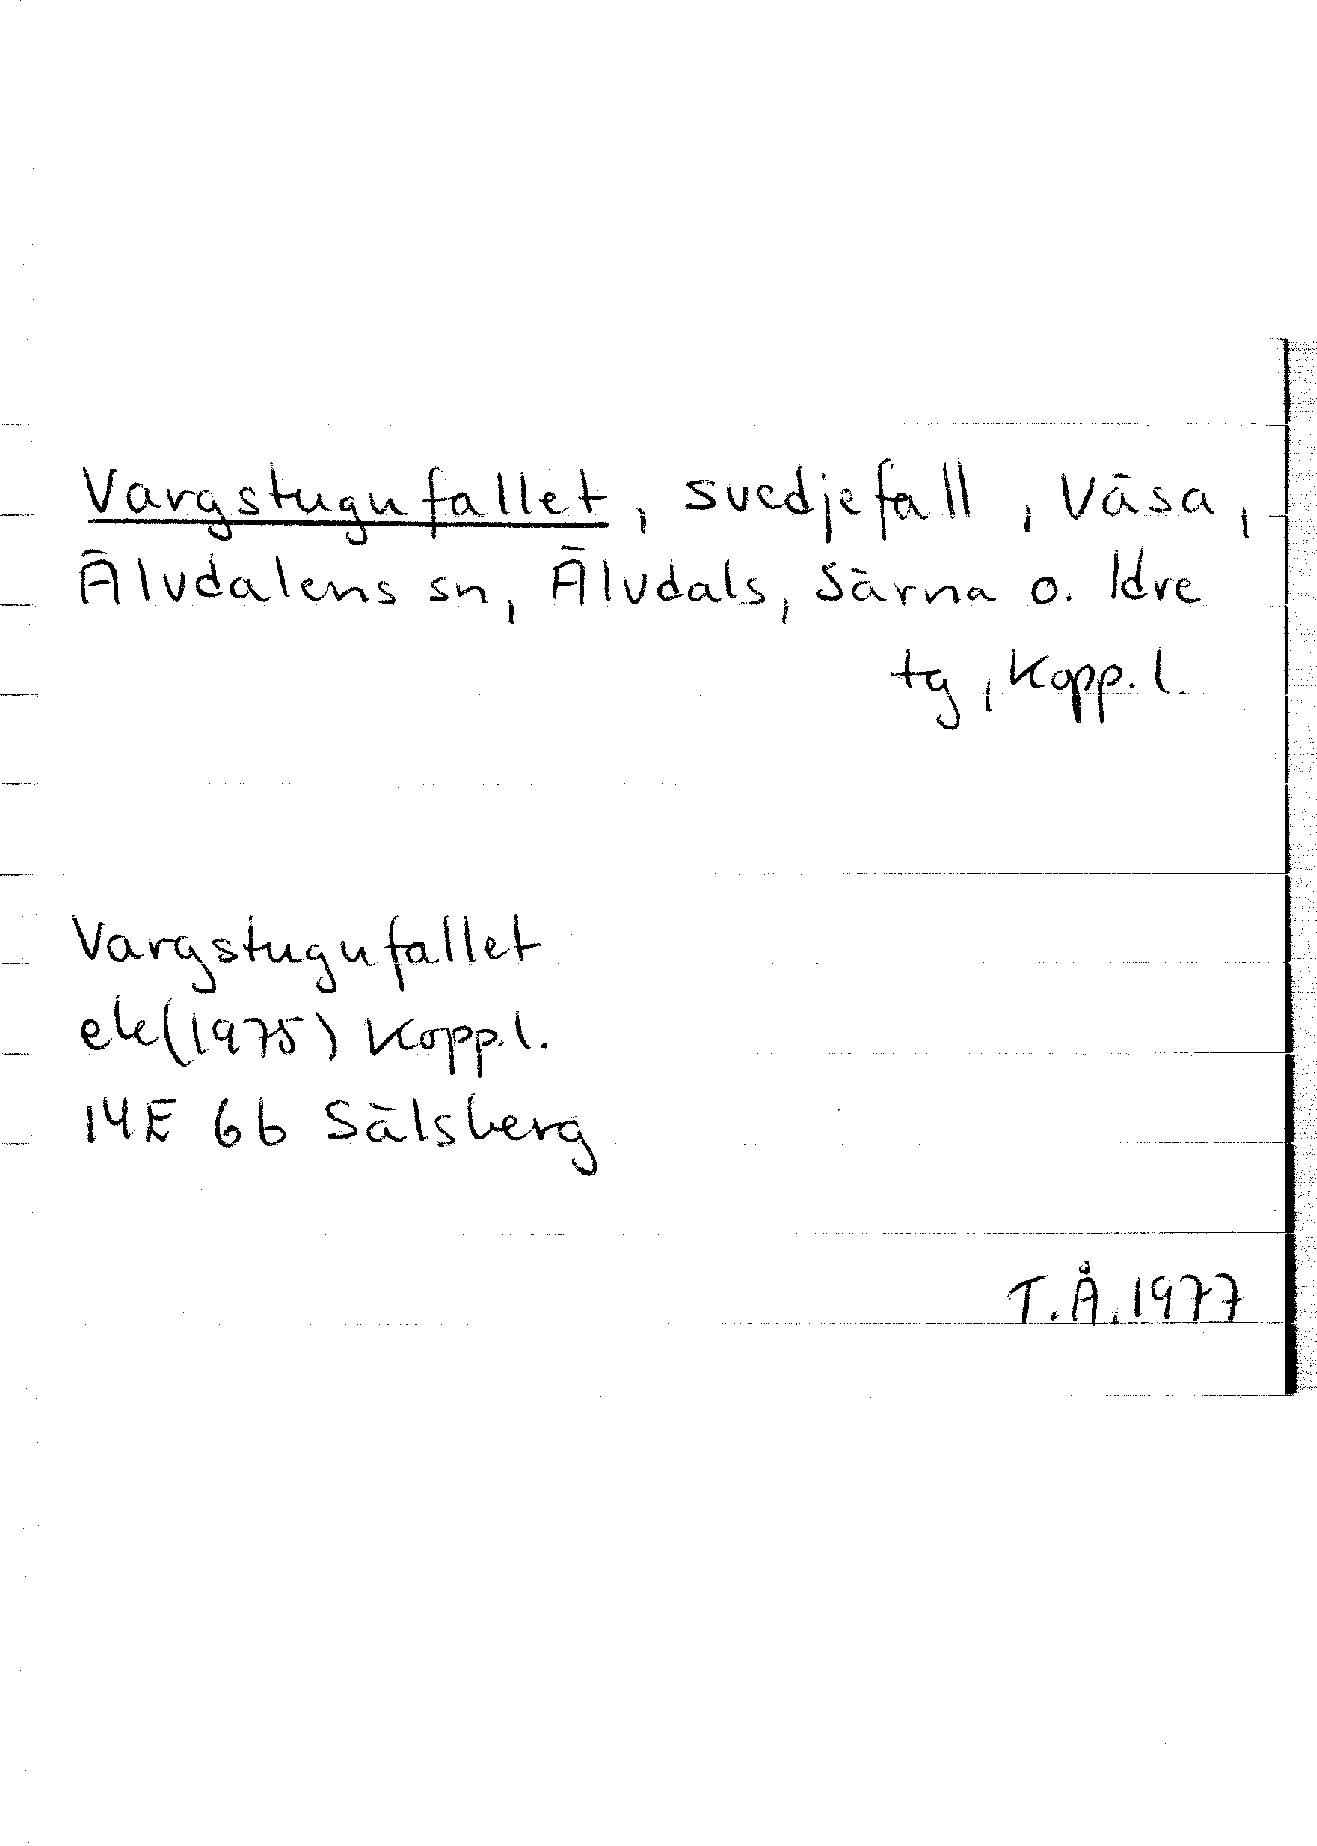 Vargstugufallet, svedjefall, Väsa,
Älvdalens sn, Älvdals, Särna o. Idre
tg, Kopp.l.
Vargstugufallet
ek(1975) Kopp.l.
14E 6b Sälsberg
T.Å.1977